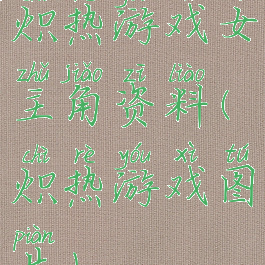 炽热游戏女
zhǔ jiǎo zī liào
主角资料(
chì rè yóu xì tú
炽热游戏图
piàn
片)